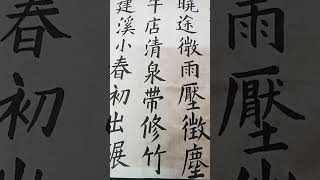 曉途微雨壓徵塵
午店清泉帶修竹
建溪小春初出碾